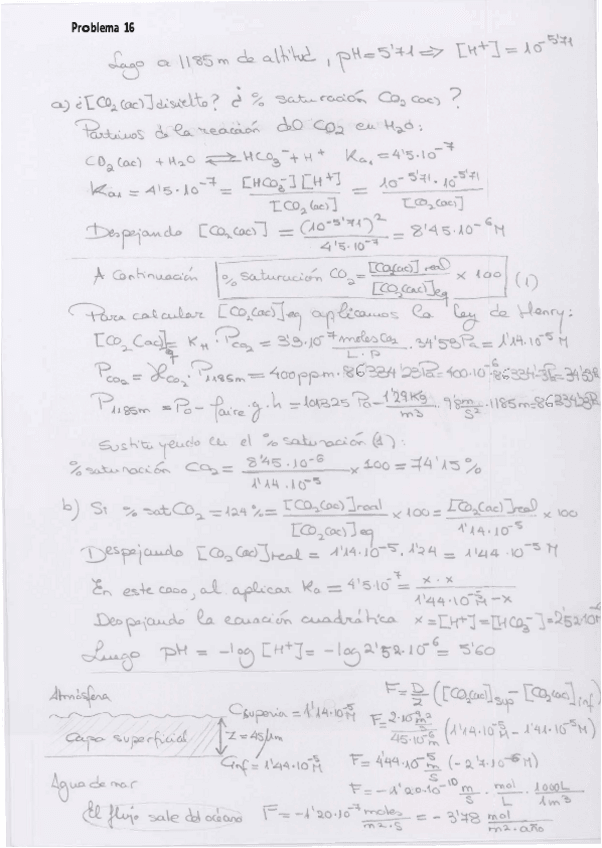 Problema 16
Lago a 1185 m de altitud, pH = 5'71 ⇒ [H⁺] = 10^-5'71
a) ¿[CO₂(ac)] disuelto? ¿% saturación CO₂(ac)?
Partimos de la reacción del CO₂ en H₂O:
CO₂(ac) + H₂O ⇌ HCO₃⁻ + H⁺   Ka₁ = 4'5·10⁻⁷
Ka₁ = 4'5·10⁻⁷ = [HCO₃⁻][H⁺] / [CO₂(ac)] = 10^-5'71 · 10^-5'71 / [CO₂(ac)]
Despejando [CO₂(ac)] = (10^-5'71)² / 4'5·10⁻⁷ = 8'45·10⁻⁶ M
A continuación % saturación CO₂ = [CO₂(ac)]real / [CO₂(ac)]eq × 100 (1)
Para calcular [CO₂(ac)]eq aplicamos la ley de Henry:
[CO₂(ac)]eq = K_H · P_CO₂ = 3'3·10⁻⁷ moles CO₂ / L·P · 34'53 Pa = 1'14·10⁻⁵ M
P_CO₂ = X_CO₂ · P₁₁₈₅m = 400 ppm · 86334'23 Pa = 400·10⁻⁶ · 86334 Pa = 34'53
P₁₁₈₅m = P₀ − ρaire·g·h = 101325 Pa − 1'29 Kg / m³ · 9'8 m / s² · 1185m = 86334'23 P
Sustituyendo en el % saturación (1):
% saturación CO₂ = 8'45·10⁻⁶ / 1'14·10⁻⁵ × 100 = 74'15%
b) Si % sat CO₂ = 124% = [CO₂(ac)]real / [CO₂(ac)]eq × 100 = [CO₂(ac)]real / 1'14·10⁻⁵ × 100
Despejando [CO₂(ac)]real = 1'14·10⁻⁵ · 1'24 = 1'44·10⁻⁵ M
En este caso, al aplicar Ka = 4'5·10⁻⁷ = x · x / 1'44·10⁻⁵ M − x
Despejando la ecuación cuadrática x = [H⁺] = [HCO₃⁻] = 2'52·10
Luego pH = −log [H⁺] = −log 2'52·10⁻⁶ = 5'60
Atmósfera
Csuperior = 1'14·10⁻⁵ M
capa superficial
z = 45 μm
Cinf = 1'44·10⁻⁵ M
Agua de mar
El flujo sale del océano
F = D / z ([CO₂(ac)]sup − [CO₂(ac)]inf)
F = 2·10 m² / s / 45·10⁻⁶ m (1'14·10⁻⁵ M − 1'41·10⁻⁵ M)
F = 4'44·10⁻⁵ m / s (−2'7·10⁻⁶ M)
F = −1'20·10⁻¹⁰ m / s · mol / L · 1000L / 1m³
F = −1'20·10⁻⁷ moles / m²·s = −3'78 mol / m²·año